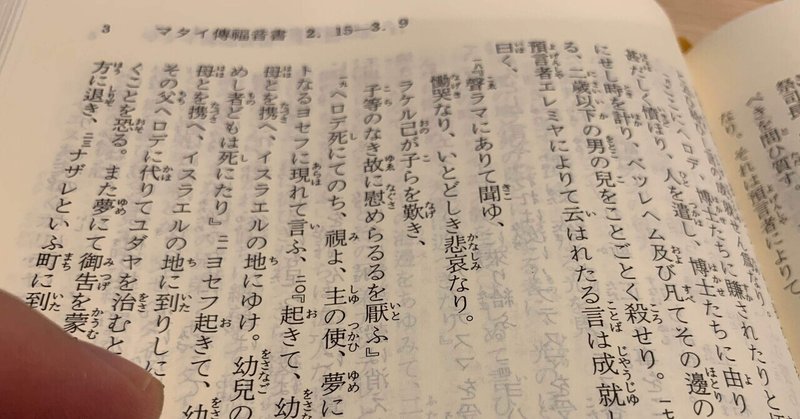 3 マタイ傳福音書 2. 15―3. 9
祭司長
べきを問ひ質す。
なり。それは預言者によりて
ここにヘロデ、博士たちに賺されたりと
甚だしく憤ほり、人を遣し、博士たちに由り
にせし時を計り、ベツレヘム及び凡てその邊の
る、二歳以下の男の兒をことごとく殺せり。
預言者エレミヤによりて云はれたる言は成就し
曰く、
一八『聲ラマにありて聞ゆ、
慟哭なり、いとどしき悲哀なり。
ラケル己が子らを歎き、
子等のなき故に慰めらるるを厭ふ』
一九ヘロデ死にてのち、視よ、主の使、夢に
トなるヨセフに現れて言ふ、二〇『起きて、幼
母とを携へ、イスラエルの地にゆけ。幼兒の
めし者どもは死にたり』二一ヨセフ起きて、幼
母とを携へ、イスラエルの地に到りしに
その父ヘロデに代りてユダヤを治むと
くことを恐る。また夢にて御告を蒙
方に退き、二三ナザレといふ町に到